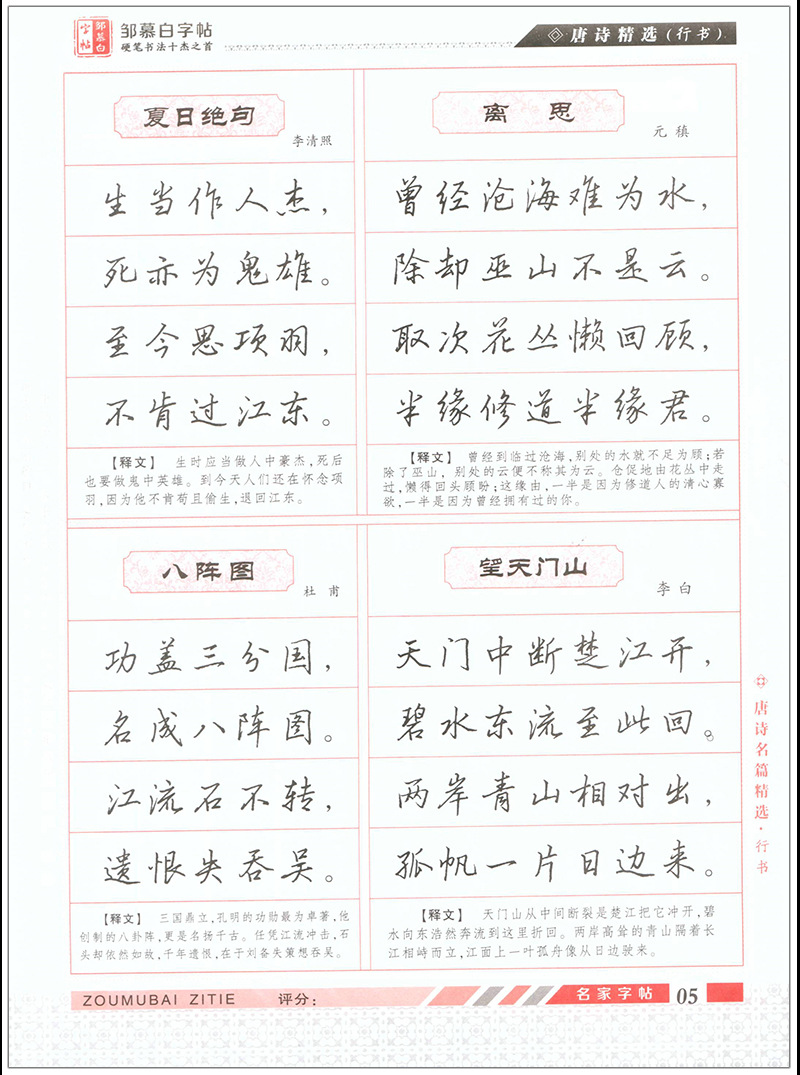 邹慕白
字帖
邹慕白字帖
硬笔书法十杰之首
唐诗精选(行书)
夏日绝句
李清照
生当作人杰，
死亦为鬼雄。
至今思项羽，
不肯过江东。
【释文】 生时应当做人中豪杰,死后
也要做鬼中英雄。到今天人们还在怀念项
羽,因为他不肯苟且偷生,退回江东。
离思
元稹
曾经沧海难为水，
除却巫山不是云。
取次花丛懒回顾，
半缘修道半缘君。
【释文】 曾经到临过沧海,别处的水就不足为顾;若
除了巫山，别处的云便不称其为云。仓促地由花丛中走
过,懒得回头顾盼;这缘由,一半是因为修道人的清心寡
欲,一半是因为曾经拥有过的你。
八阵图
杜甫
功盖三分国，
名成八阵图。
江流石不转，
遗恨失吞吴。
【释文】 三国鼎立,孔明的功勋最为卓著,他
创制的八卦阵,更是名扬千古。任凭江流冲击,石
头却依然如故,千年遗恨,在于刘备失策想吞吴。
望天门山
李白
天门中断楚江开，
碧水东流至此回。
两岸青山相对出，
孤帆一片日边来。
【释文】 天门山从中间断裂是楚江把它冲开,碧
水向东浩然奔流到这里折回。两岸高耸的青山隔着长
江相峙而立,江面上一叶孤舟像从日边驶来。
唐诗名篇精选·行书
ZOUMUBAI ZITIE 评分:
名家字帖 05